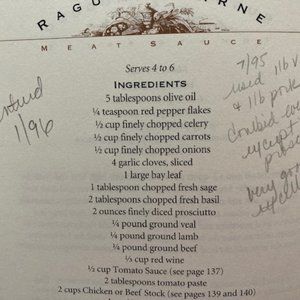 RAGU
RNE
MEAT SAUCE
Serves 4 to 6
INGREDIENTS
5 tablespoons olive oil
¼ teaspoon red pepper flakes
½ cup finely chopped celery
½ cup finely chopped carrots
½ cup finely chopped onions
4 garlic cloves, sliced
1 large bay leaf
1 tablespoon chopped fresh sage
2 tablespoons chopped fresh basil
2 ounces finely diced prosciutto
¼ pound ground veal
¼ pound ground lamb
¼ pound ground beef
⅓ cup red wine
½ cup Tomato Sauce (see page 137)
2 tablespoons tomato paste
2 cups Chicken or Beef Stock (see pages 139 and 140)
1/96
7/95
used 1 lb v
& 1 lb pork
except
very